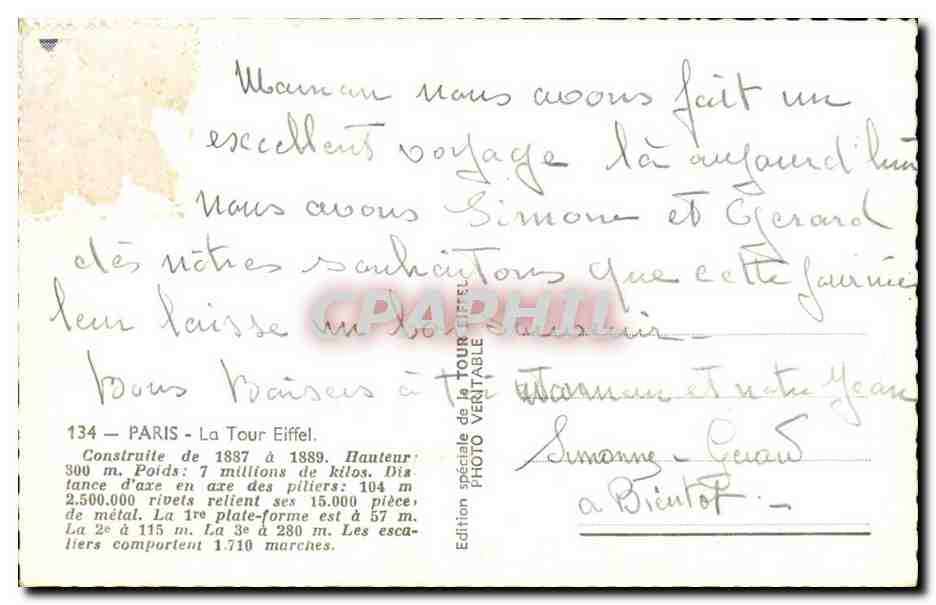 Maman nous avons fait un
excellent voyage là aujourd'hui
nous avons Simone et Gerard
des nôtres souhaitons que cette journée
leur laisse un bon souvenir
Bons Baisers à toi Maman et notre Jean
Simonne - Gerard
a Bientot -
134 — PARIS - La Tour Eiffel.
Construite de 1887 à 1889. Hauteur:
300 m. Poids: 7 millions de kilos. Dis
tance d'axe en axe des piliers: 104 m
2.500.000 rivets relient ses 15.000 pièce,
de métal. La 1re plate-forme est à 57 m.
La 2e à 115 m. La 3e à 280 m. Les esca-
liers comportent 1.710 marches.
Edition spéciale de la TOUR EIFFEL
PHOTO VERITABLE
CPAPHIL